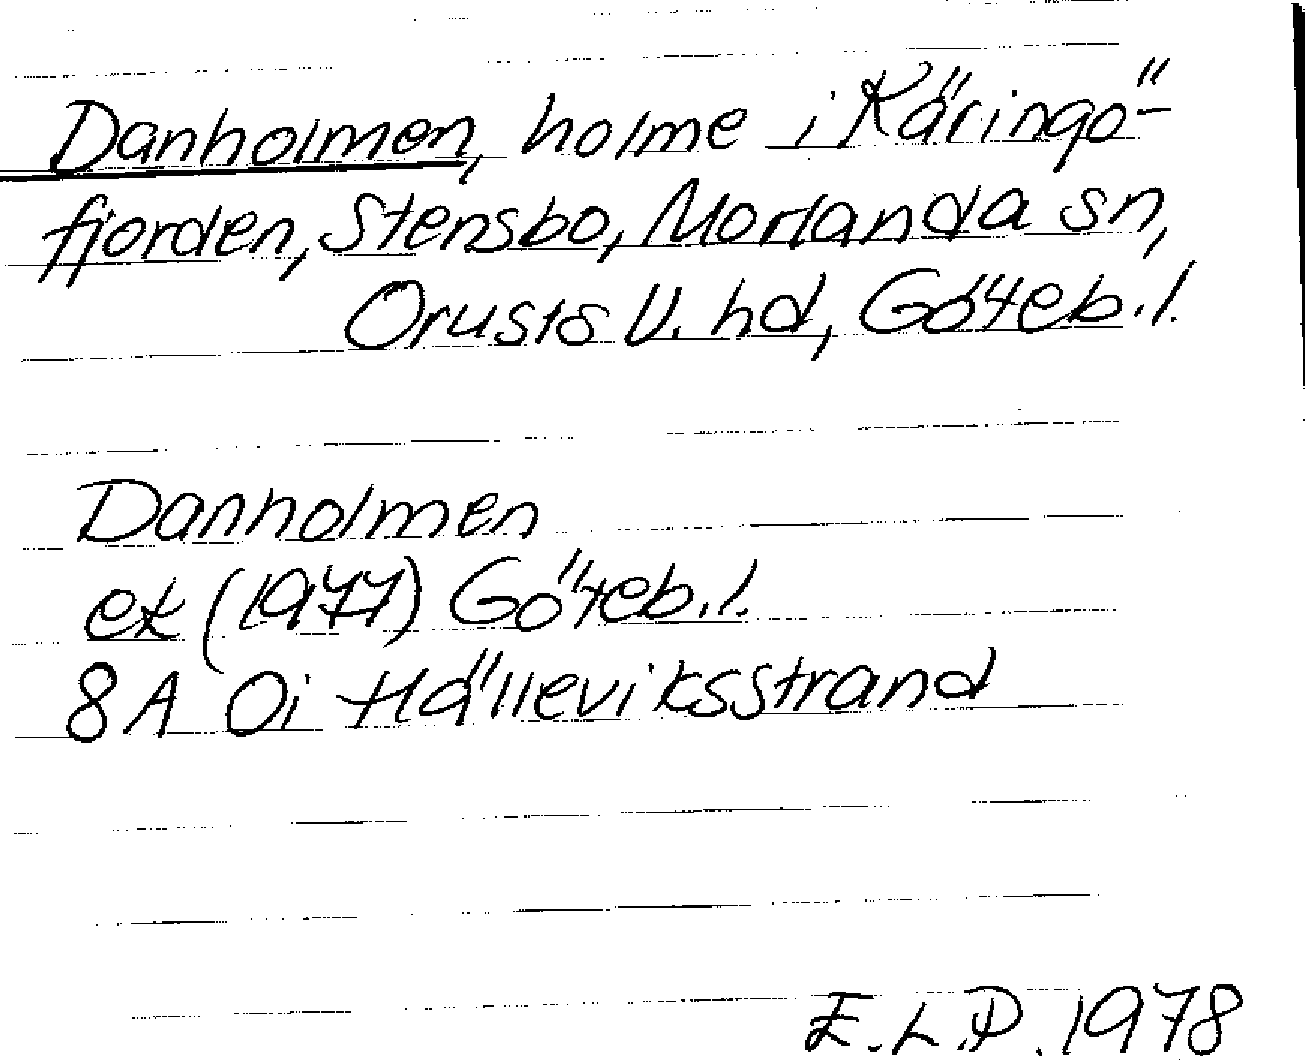 Danholmen, holme i Käringö-
fjorden, Stensbo, Morlanda sn,
Orusts V. hd, Göteb. l.
Danholmen
ek (1977) Göteb. l.
8A 0i Hälleviksstrand
E.L.P. 1978